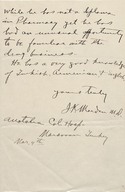 While he has not a diploma
in Pharmacy yet he has
had an unusual opportunity
to be familiar with the
drug business.
He has a very good knowledge
of Turkish, Armenian &
Yours truly
M.D.
Anatolia Col. Hosp.
Marsovan Turkey